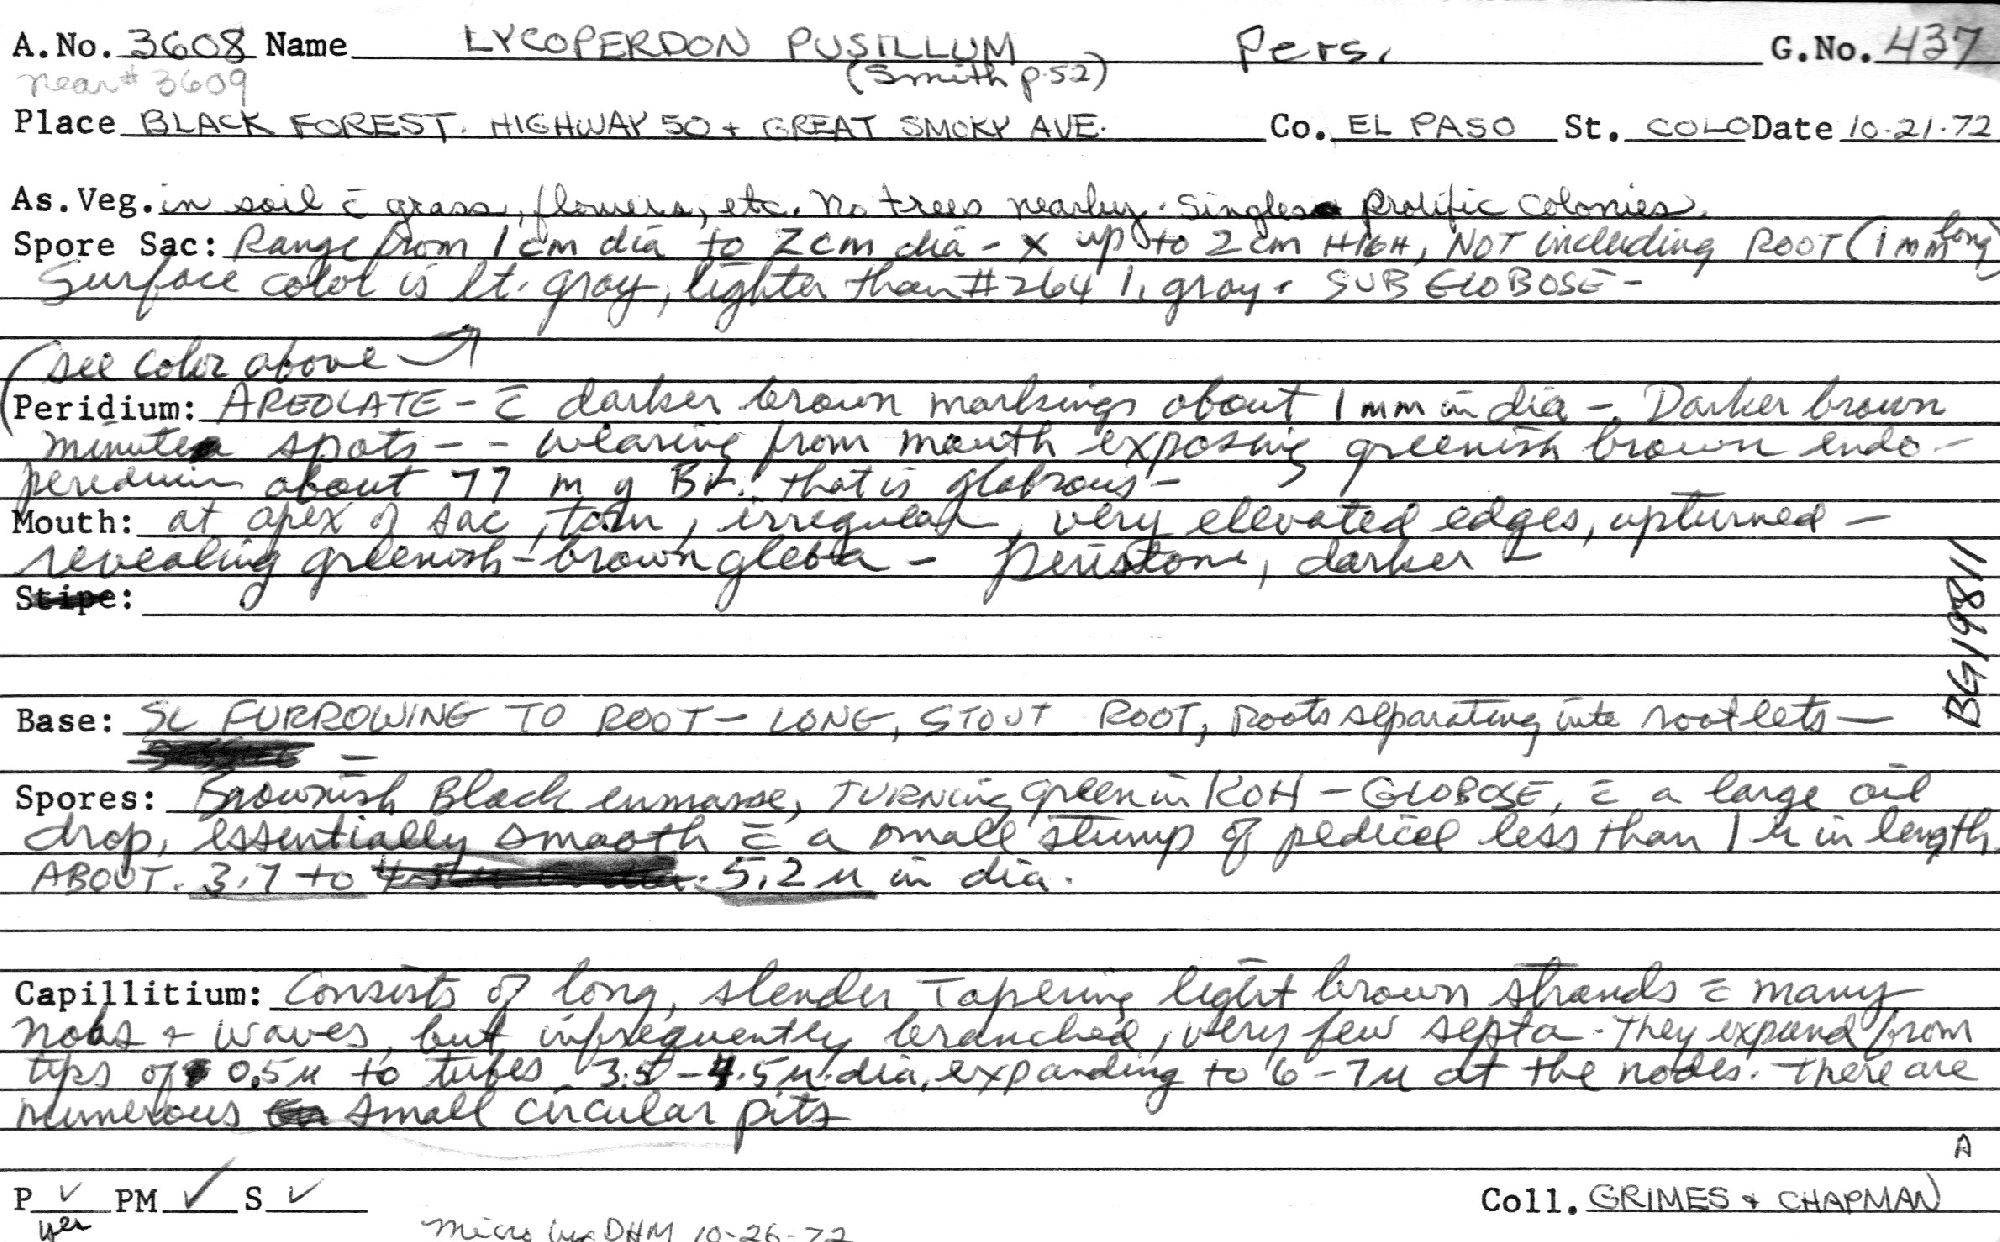 A.No. 3608 Name LYCOPERDON PUSILLUM Pers. G.No. 437
near # 3609 (Smith p.52)
Place BLACK FOREST. HIGHWAY 50 + GREAT SMOKY AVE. Co. EL PASO St. COLO Date 10-21-72
As.Veg. in soil c̄ grass, flowers, etc. No trees nearby. Singles Prolific Colonies.
Spore Sac: Range from 1 cm dia to 2 cm dia - x up to 2 cm HIGH, NOT including ROOT (1 mm long)
Surface color is lt. gray, lighter than #264 l. gray. SUBGLOBOSE -
(see color above
Peridium: AREOLATE - c̄ darker brown markings about 1 mm in dia -. Darker brown
minute spots - - wearing from mouth exposing greenish brown endo-
peredium about 77 m y Br. that is glabrous -
Mouth: at apex of sac, torn, irregular, very elevated edges, upturned -
revealing greenish-brown gleba - peristome, darker -
Stipe:
BG19811
Base: SL FURROWING TO ROOT - LONG, STOUT ROOT, roots separating into rootlets -
Spores: Brownish Black enmasse, TURNing green in KOH - GLOBOSE, c̄ a large oil
drop, essentially smooth c̄ a small stump of pedicel less than 1 u in length.
ABOUT. 3.7 to 5.2 u in dia.
Capillitium: Consists of long, slender Tapering light brown strands c̄ many
nobs + waves, but infrequently branched, very few septa. They expand from
tips of 0.5u to tubes 3.5 - 4.5u dia, expanding to 6-7u at the nodes. There are
numerous small circular pits
A
P ✓ PM ✓ S ✓ Coll. GRIMES + CHAPMAN
yes Micro by DHM 10-26-72